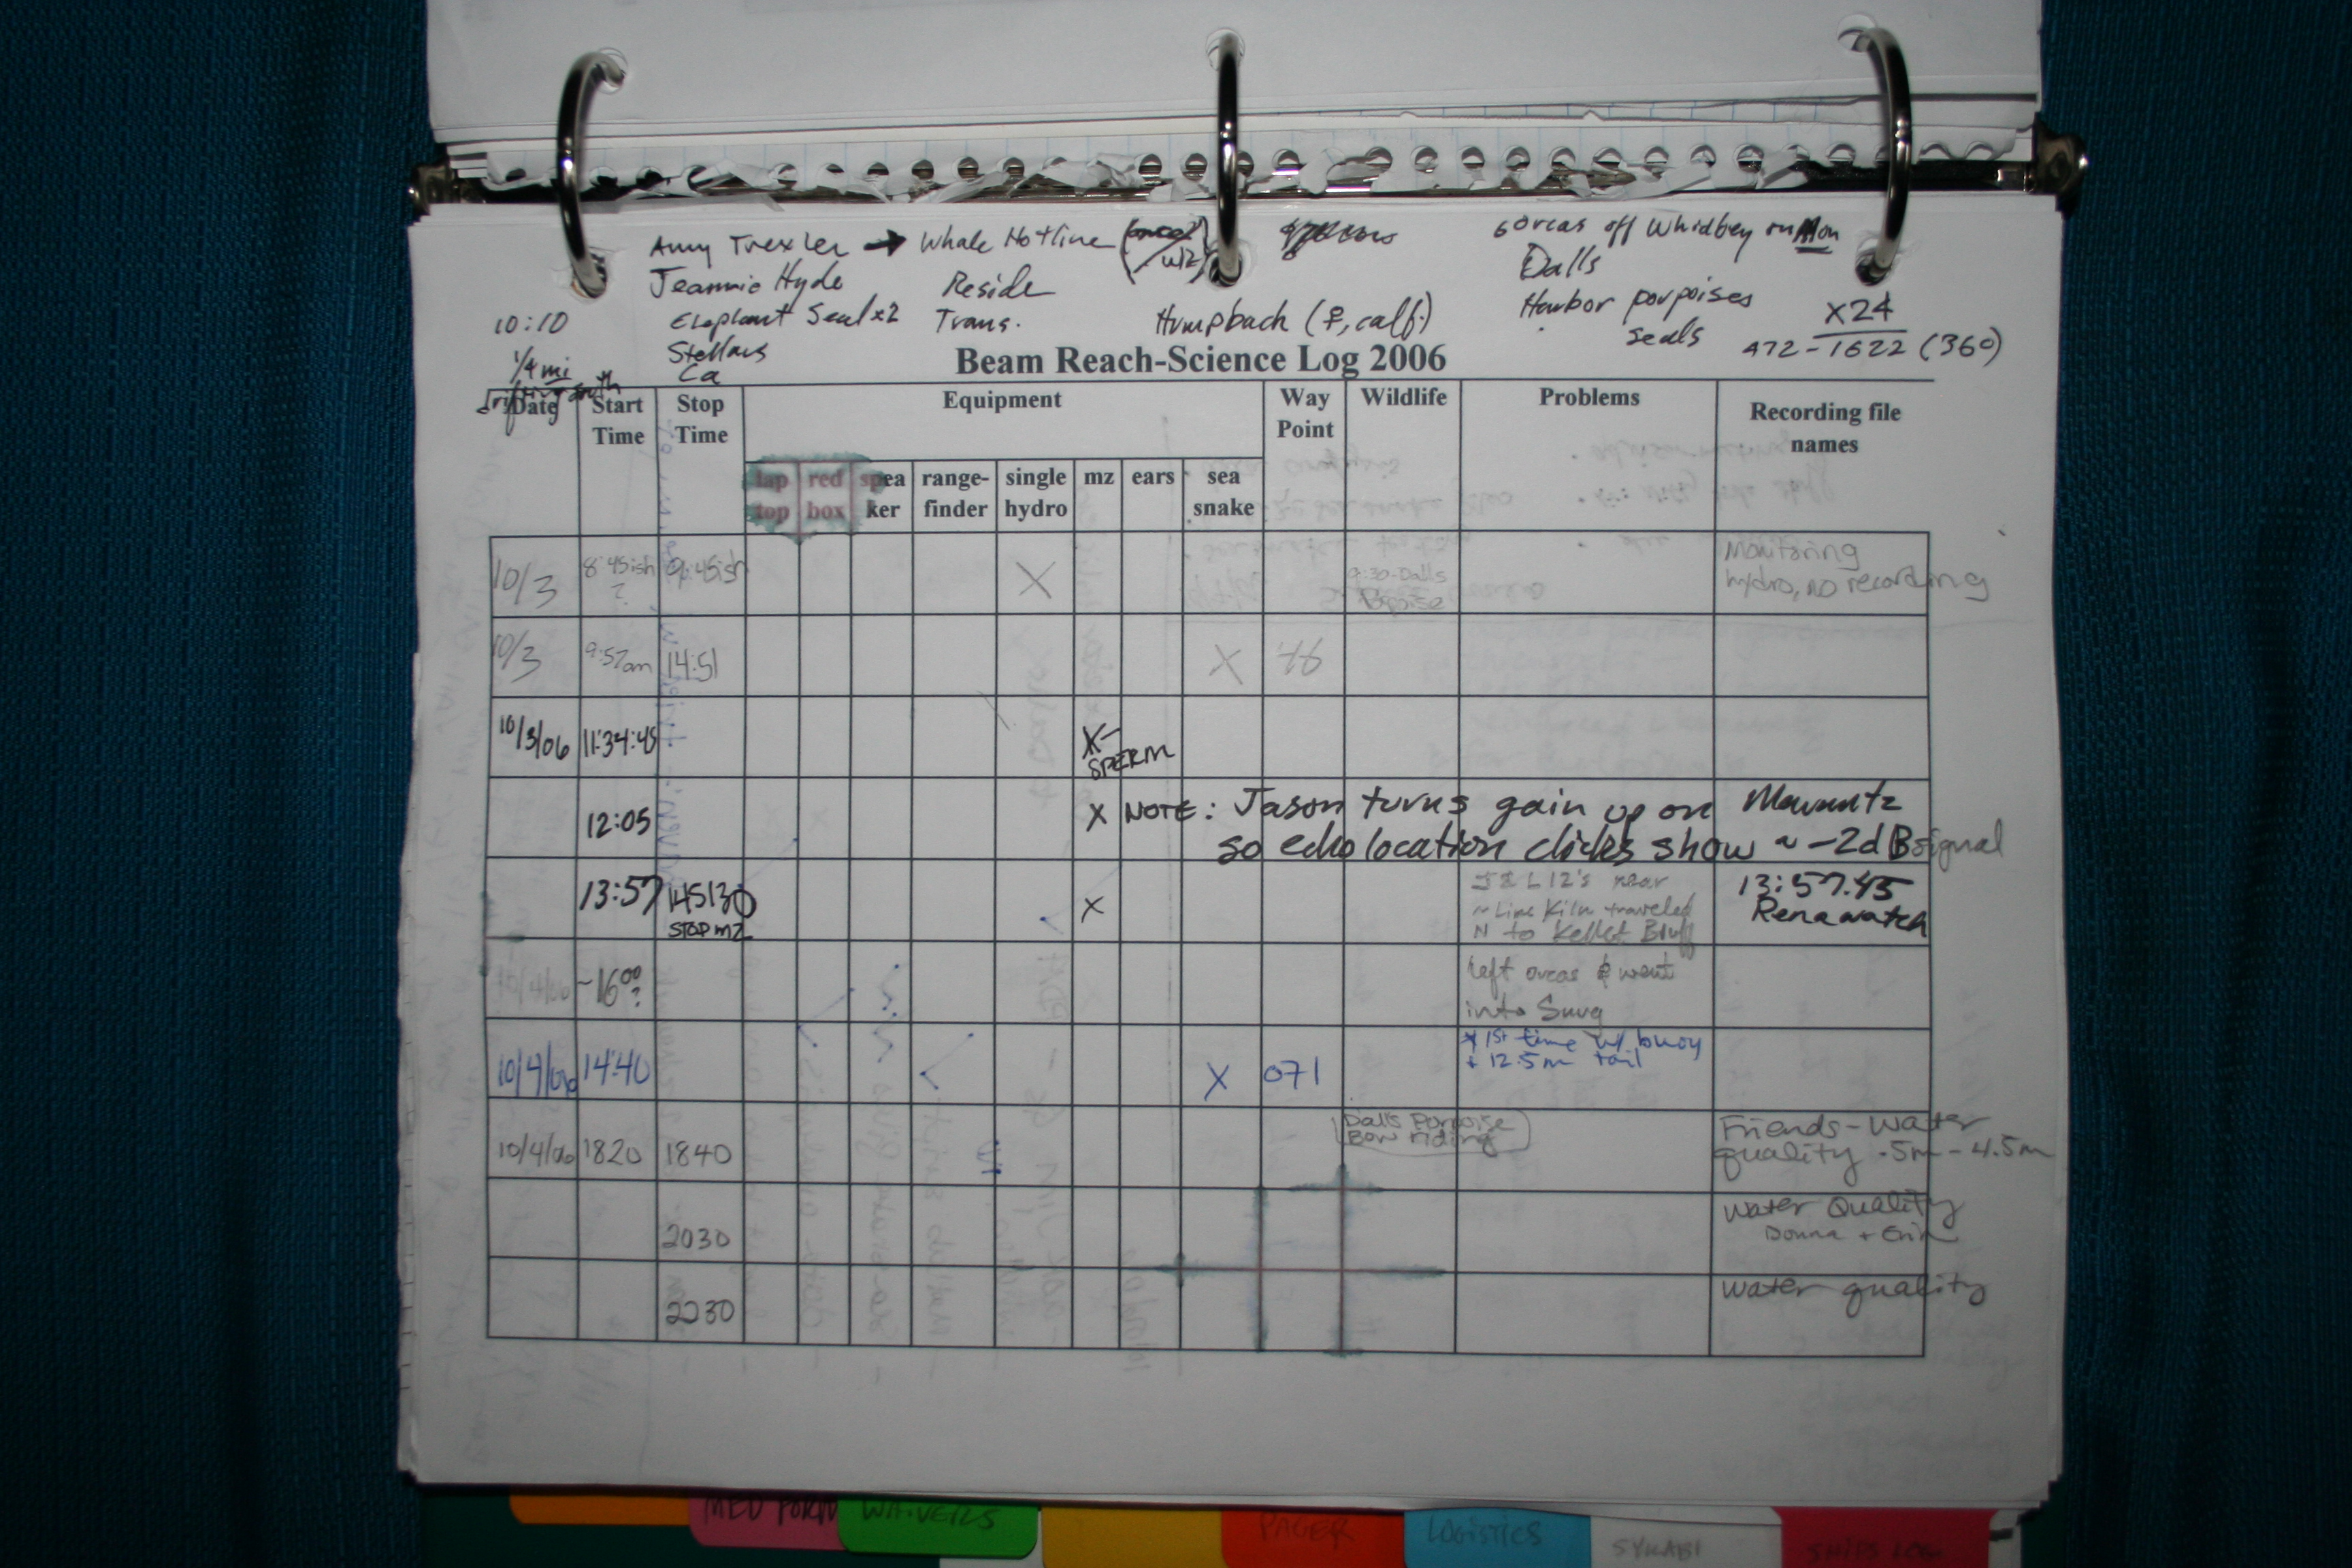 Amy Trexler → Whale Hotline
6 orcas off Whidbey on Mon
Jeannie Hyde Reside Dalls
10:10 Elephant Seal x2 Trans. Humpback (♀, calf) Harbor porpoises
Stellars seals
X24
472-1622 (360)
1/4 mi
Ca
Beam Reach-Science Log 2006
Date Start Time Stop Time Equipment Way Point Wildlife Problems Recording file names
lap top red box spea ker range-finder single hydro mz ears sea snake
10/3 8:45ish ? 9:45ish X 9:30-Dalls Porpoise Monitoring hydro, no recording
10/3 9:57am 14:51 X
10/3/06 11:34:45 X- SPERM
12:05 X NOTE: Jason turns gain up on Marantz
so echolocation clicks show ~ -2dB signal
13:57 145130 STOP MZ X J & L 12's near ~Lime Kiln traveled N to Kellet Bluff 13:57:45 Renawatch
10/4/06 ~16:00 ? left orcas & went into Snug
10/4/06 14:40 X 071 * 1st time w/ buoy + 12.5m tail
10/4/06 1820 1840 Dalls Porpoise Bow riding Friends-Water quality .5m - 4.5m
2030 Water Quality Donna + Erin
2230 Water quality
MED FORM WAIVERS PAGER LOGISTICS SYLLABI SHIPS LOG